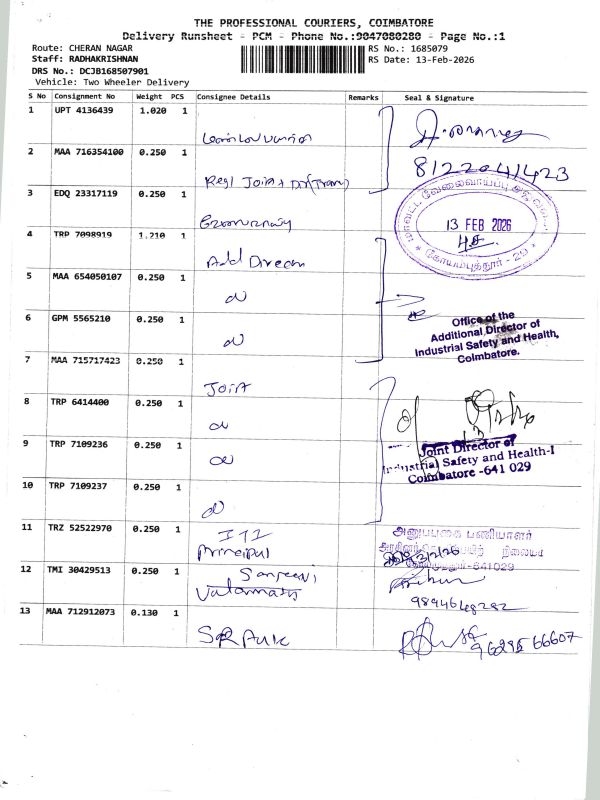 THE PROFESSIONAL COURIERS, COIMBATORE
Delivery Runsheet - PCM - Phone No.:9047080280 - Page No.:1
Route: CHERAN NAGAR
RS No.: 1685079
Staff: RADHAKRISHNAN
RS Date: 13-Feb-2026
DRS No.: DCJB168507901
Vehicle: Two Wheeler Delivery
S No Consignment No Weight PCS Consignee Details Remarks Seal & Signature
1 UPT 4136439 1.020 1
8122041423
2 MAA 716354100 0.250 1
Regl Joint
3 EDQ 23317119 0.250 1
மாவட்ட வேலைவாய்ப்பு
13 FEB 2026
* கோயம்புத்தூர் - 29 *
4 TRP 7098919 1.210 1
Add Direcor
5 MAA 654050107 0.250 1
6 GPM 5565210 0.250 1
Office of the
Additional Director of
Industrial Safety and Health,
Coimbatore.
7 MAA 715717423 0.250 1
Joint
8 TRP 6414400 0.250 1
9 TRP 7109236 0.250 1
Joint Director of
Industrial Safety and Health-I
Coimbatore -641 029
10 TRP 7109237 0.250 1
11 TRZ 52522970 0.250 1
ITI
Principal
அலுவலக பணியாளர்
12 TMI 30429513 0.250 1
Sanjeevi
9894648282
13 MAA 712912073 0.130 1